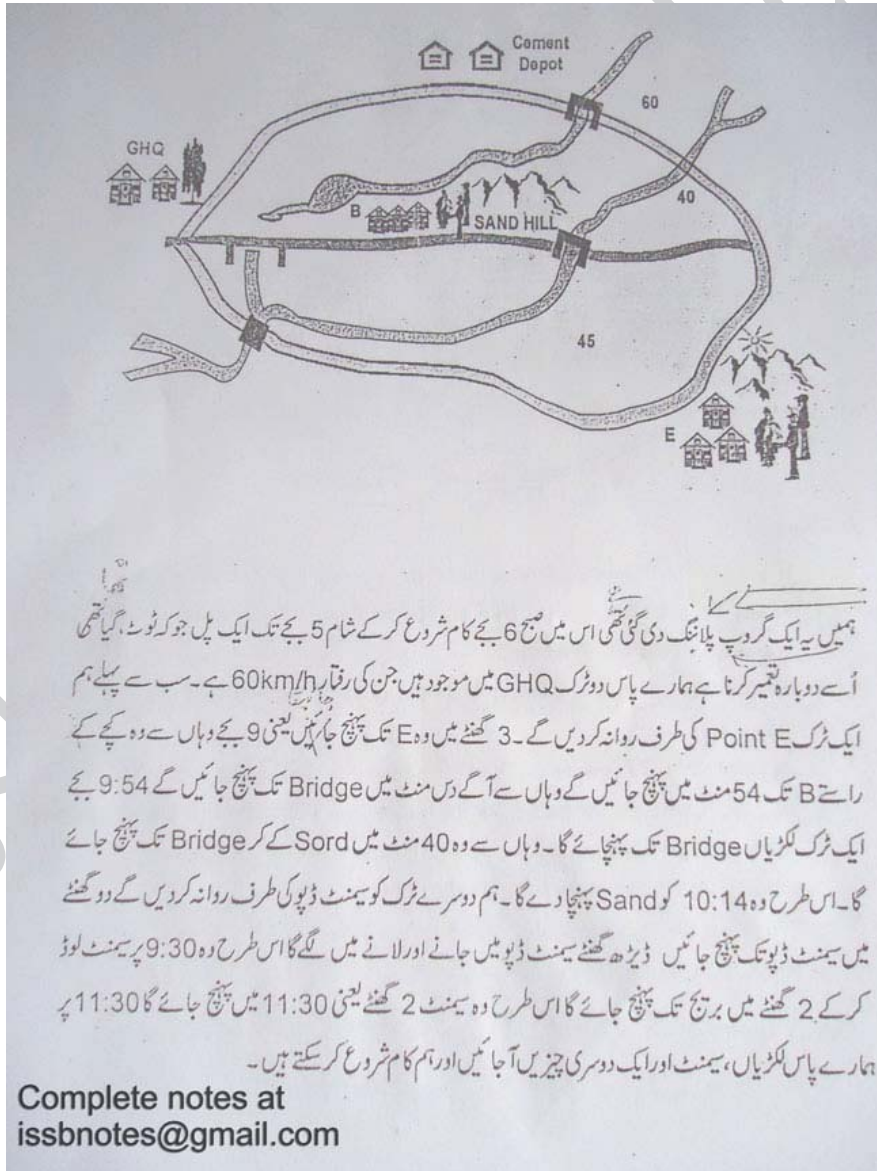 Cement
Depot
60
GHQ
40
B
SAND HILL
45
E
ہمیں یہ ایک گروپ پلاننگ دی گئی تھی اس میں صبح 6 بجے کام شروع کر کے شام 5 بجے تک ایک پل جو کہ ٹوٹ گیا تھی
اُسے دوبارہ تعمیر کرنا ہے ہمارے پاس دو ٹرک GHQ میں موجود ہیں جن کی رفتار 60km/h ہے۔ سب سے پہلے ہم
ایک ٹرک Point E کی طرف روانہ کر دیں گے۔ 3 گھنٹے میں وہ E تک پہنچ جائیں یعنی 9 بجے وہاں سے وہ کچے کے
راستے B تک 54 منٹ میں پہنچ جائیں گے وہاں سے آگے دس منٹ میں Bridge تک پہنچ جائیں گے 9:54 بجے
ایک ٹرک لکڑیاں Bridge تک پہنچائے گا۔ وہاں سے وہ 40 منٹ میں Sord لے کر Bridge تک پہنچ جائے
گا۔ اس طرح وہ 10:14 کو Sand پہنچا دے گا۔ ہم دوسرے ٹرک کو سیمنٹ ڈپو کی طرف روانہ کر دیں گے دو گھنٹے
میں سیمنٹ ڈپو تک پہنچ جائیں ڈیڑھ گھنٹے سیمنٹ ڈپو میں جانے اور لانے میں لگے گا اس طرح وہ 9:30 پر سیمنٹ لوڈ
کر کے 2 گھنٹے میں بریج تک پہنچ جائے گا اس طرح وہ سیمنٹ 2 گھنٹے یعنی 11:30 میں پہنچ جائے گا 11:30 پر
ہمارے پاس لکڑیاں، سیمنٹ اور ایک دوسری چیزیں آ جائیں اور ہم کام شروع کر سکتے ہیں۔
Complete notes at
issbnotes@gmail.com